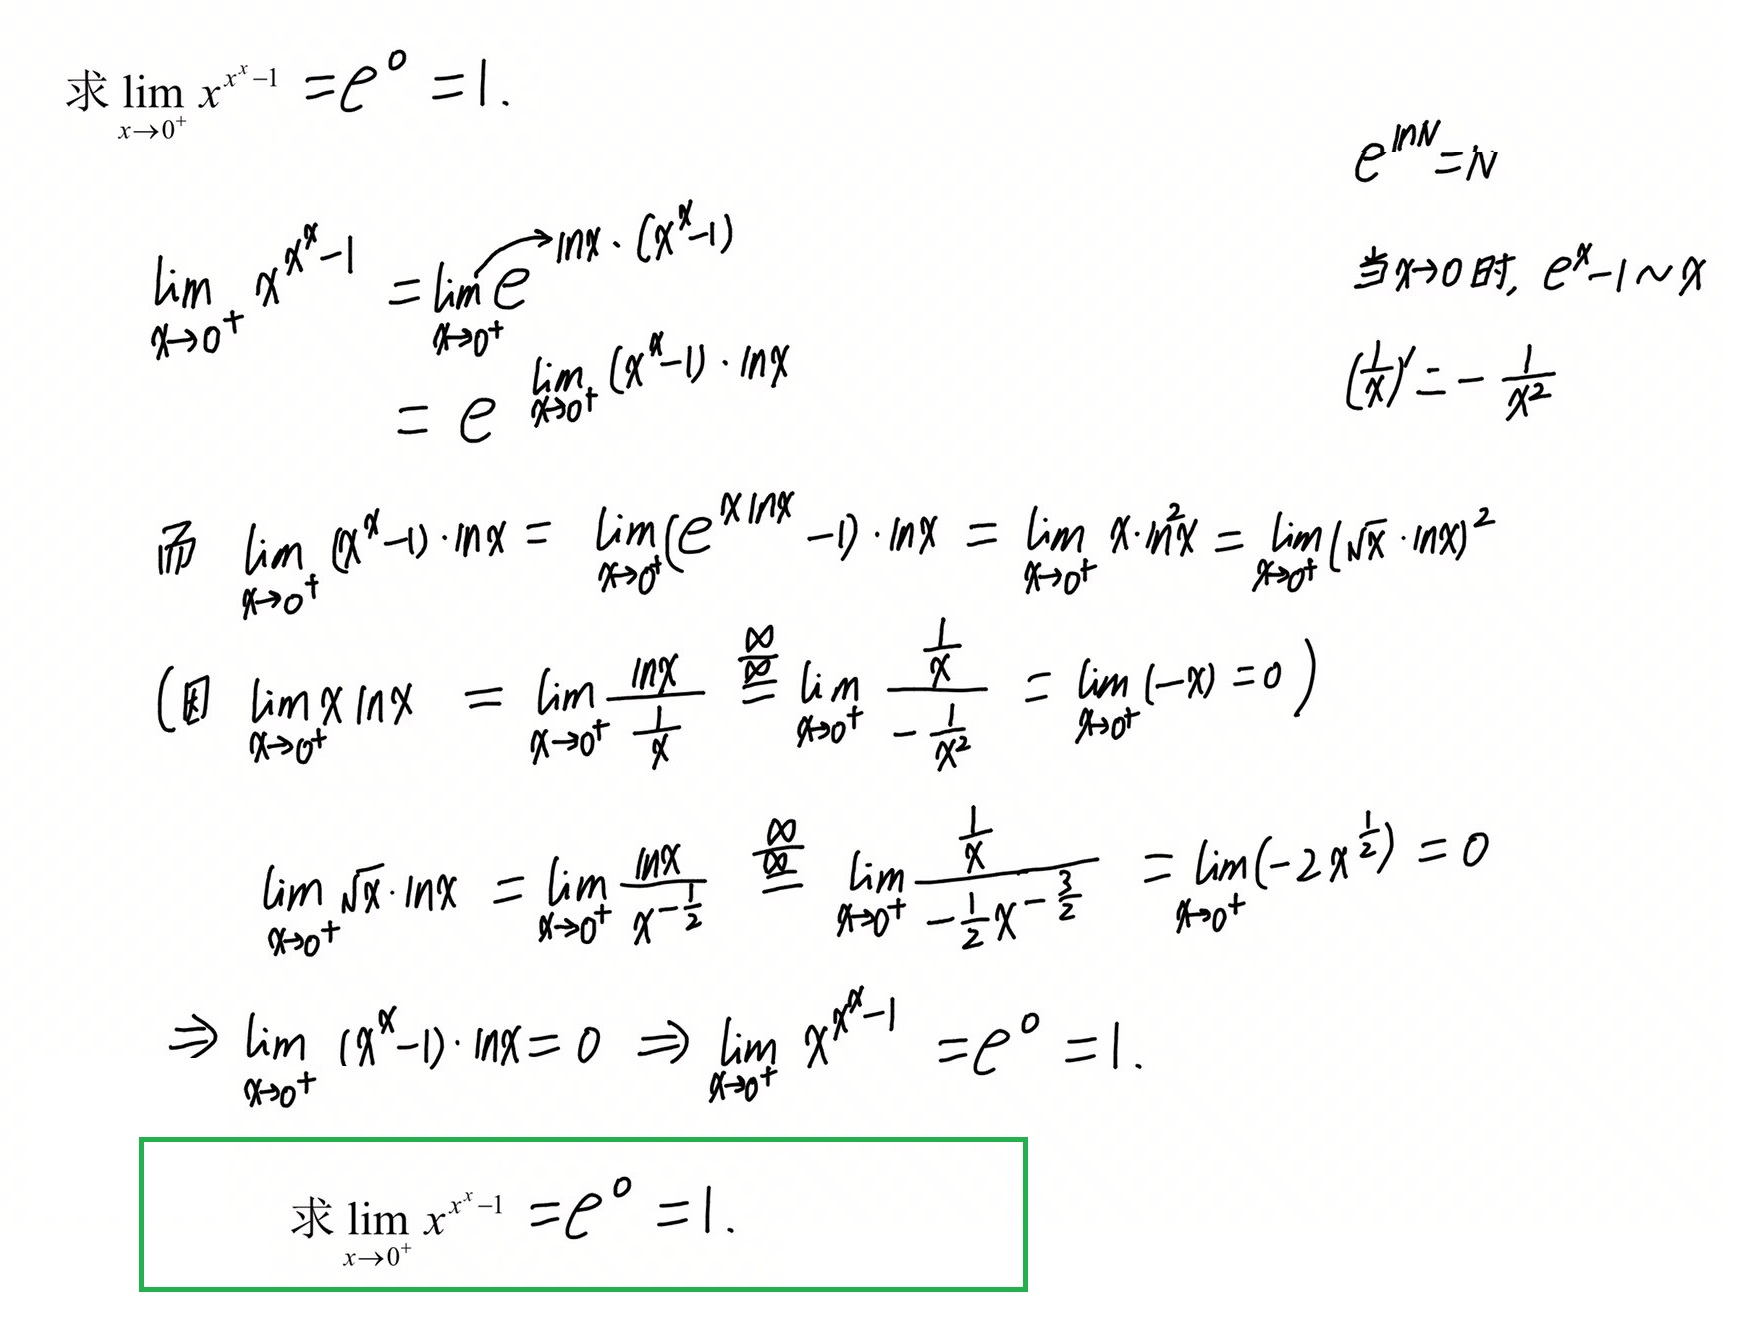 求 lim_{x→0⁺} x^{x^x−1} = e^0 = 1.
e^{lnN} = N
lim_{x→0⁺} x^{x^x−1} = lim_{x→0⁺} e^{lnx·(x^x−1)}
当x→0时, e^x−1 ~ x
= e^{lim_{x→0⁺} (x^x−1)·lnx}
(1/x)′ = −1/x²
而 lim_{x→0⁺} (x^x−1)·lnx = lim_{x→0⁺} (e^{xlnx}−1)·lnx = lim_{x→0⁺} x·ln²x = lim_{x→0⁺} (√x·lnx)²
(因 lim_{x→0⁺} x lnx = lim_{x→0⁺} lnx/(1/x) =^{∞/∞} lim_{x→0⁺} (1/x)/(−1/x²) = lim_{x→0⁺} (−x) = 0)
lim_{x→0⁺} √x·lnx = lim_{x→0⁺} lnx/x^{−1/2} =^{∞/∞} lim_{x→0⁺} (1/x)/(−1/2 x^{−3/2}) = lim_{x→0⁺} (−2x^{1/2}) = 0
⇒ lim_{x→0⁺} (x^x−1)·lnx = 0 ⇒ lim_{x→0⁺} x^{x^x−1} = e^0 = 1.
求 lim_{x→0⁺} x^{x^x−1} = e^0 = 1.